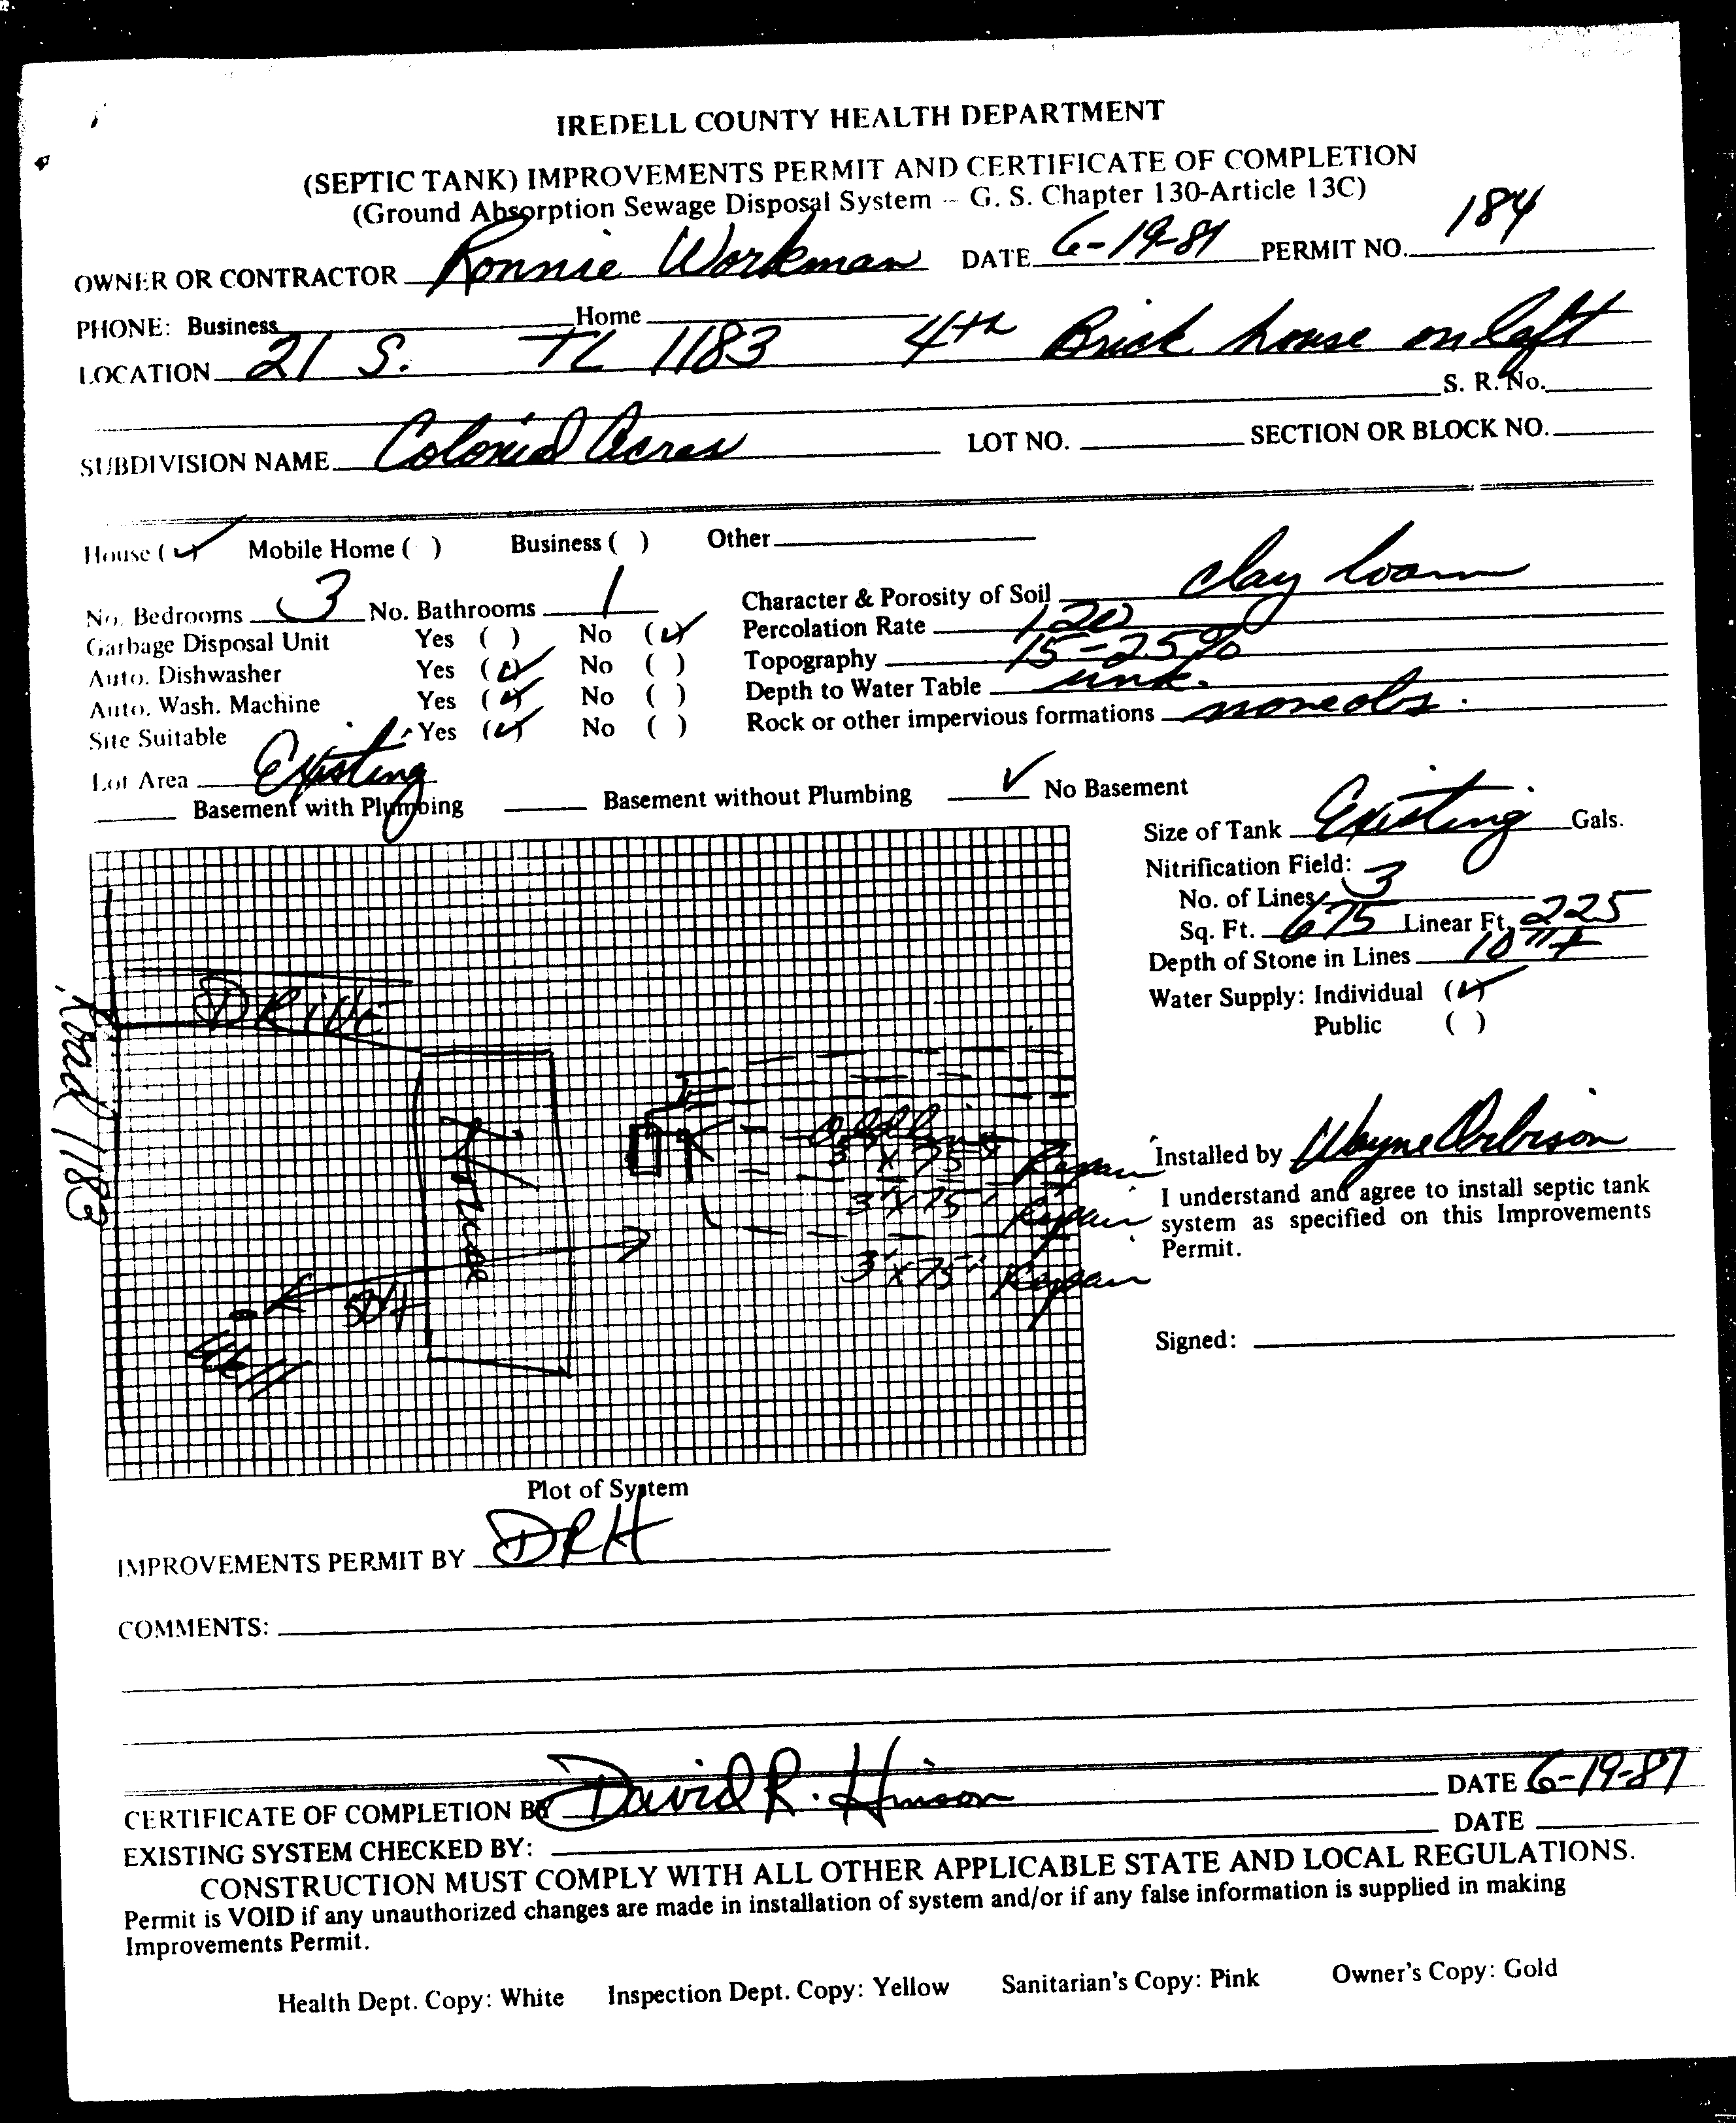 IREDELL COUNTY HEALTH DEPARTMENT
(SEPTIC TANK) IMPROVEMENTS PERMIT AND CERTIFICATE OF COMPLETION
(Ground Absorption Sewage Disposal System -- G. S. Chapter 130-Article 13C)
OWNER OR CONTRACTOR Ronnie Workman DATE 6-19-81 PERMIT NO. 184
PHONE: Business Home
LOCATION 21 S. TL 1183 4th Brick house on left
S. R. No.
SUBDIVISION NAME Colonial Acres LOT NO. SECTION OR BLOCK NO.
House (✓) Mobile Home ( ) Business ( ) Other
No. Bedrooms 3 No. Bathrooms 1 Character & Porosity of Soil clay loam
Garbage Disposal Unit Yes ( ) No (✓) Percolation Rate 120
Auto. Dishwasher Yes (✓) No ( ) Topography 15-25%
Auto. Wash. Machine Yes (✓) No ( ) Depth to Water Table unk.
Site Suitable Yes (✓) No ( ) Rock or other impervious formations none obs.
Lot Area Existing
Basement with Plumbing Basement without Plumbing ✓ No Basement
Size of Tank Existing Gals.
Nitrification Field:
No. of Lines 3
Sq. Ft. 675 Linear Ft. 225
Depth of Stone in Lines 10"+
Water Supply: Individual (✓)
Public ( )
DRIVE
Road 1183
House
3' x 75' Repair
3' x 75' Repair
3' x 75' Repair
50'+
Well
Installed by Wayne Orbison
I understand and agree to install septic tank
system as specified on this Improvements
Permit.
Signed:
Plot of System
IMPROVEMENTS PERMIT BY DRH
COMMENTS:
CERTIFICATE OF COMPLETION BY David R. Hinson DATE 6-19-81
EXISTING SYSTEM CHECKED BY: DATE
CONSTRUCTION MUST COMPLY WITH ALL OTHER APPLICABLE STATE AND LOCAL REGULATIONS.
Permit is VOID if any unauthorized changes are made in installation of system and/or if any false information is supplied in making
Improvements Permit.
Health Dept. Copy: White Inspection Dept. Copy: Yellow Sanitarian's Copy: Pink Owner's Copy: Gold